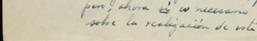 pero, ahora es necesario
sobre la realización de este